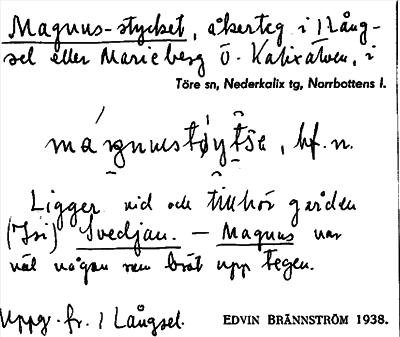 Magnus-stycket, åkerteg i 1 Lång-
sel eller Marieberg ö. Kalixälven, i
Töre sn, Nederkalix tg, Norrbottens l.
mágnustøytse, bf. n.
Ligger vid och tillhör gården
(Isi) Svedjan. — Magnus var
väl någon som bröt upp tegen.
Uppg. fr. 1 Långsel. EDVIN BRÄNNSTRÖM 1938.